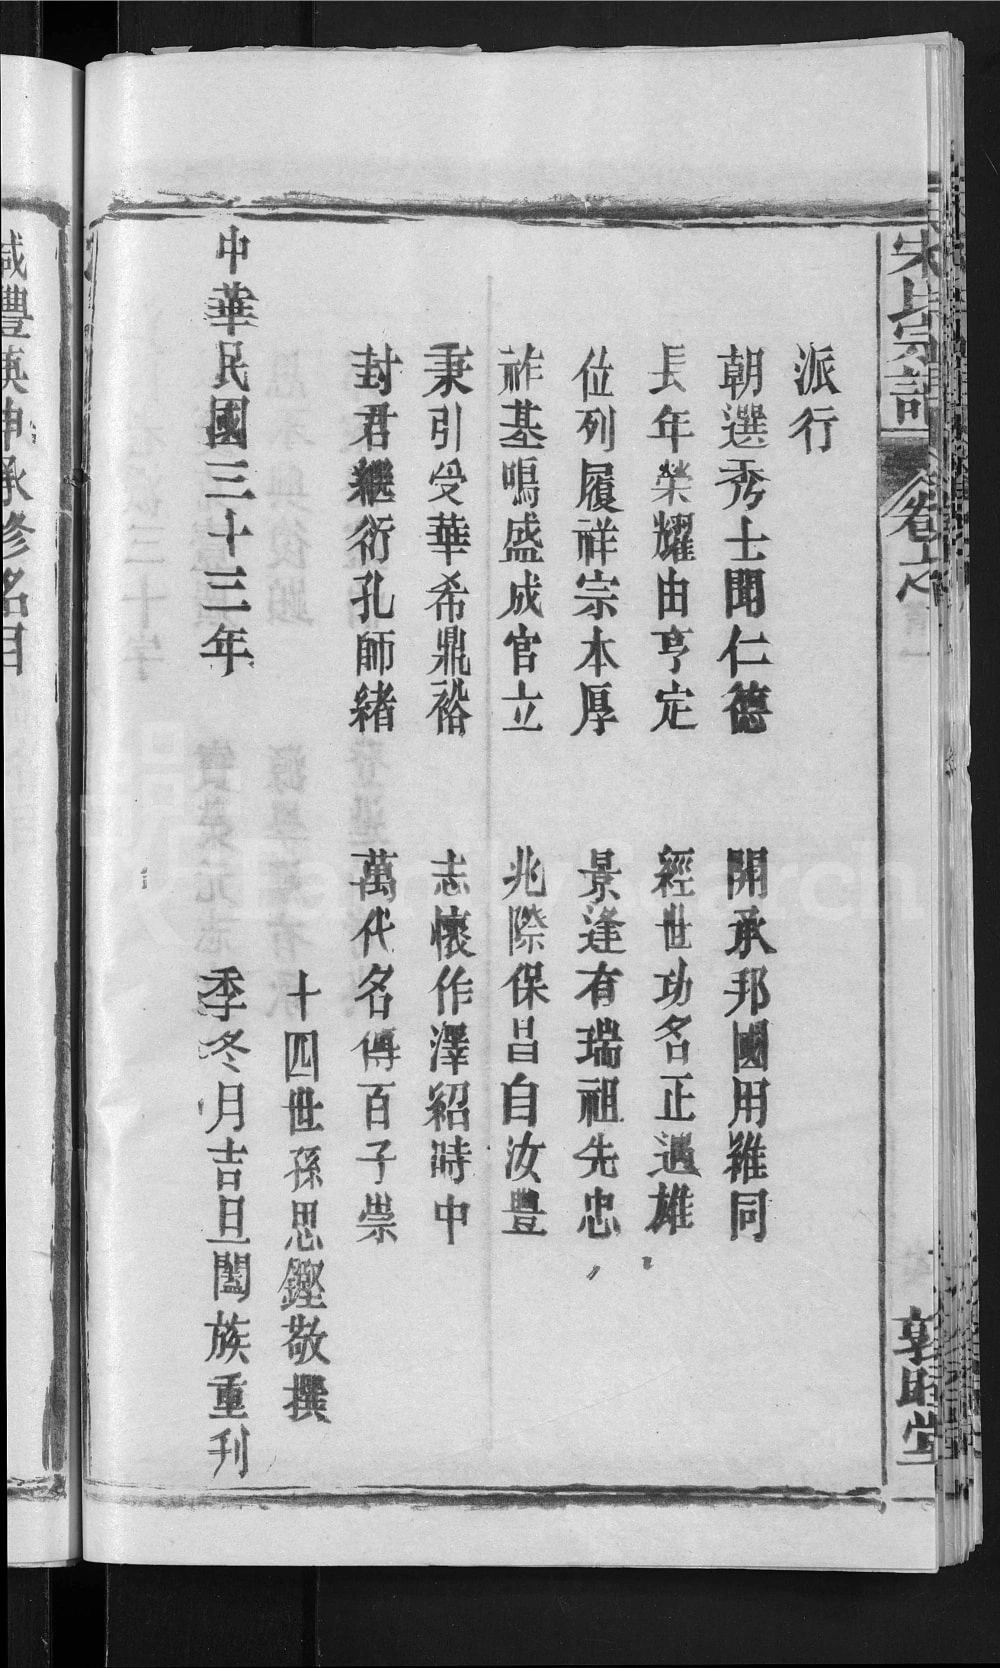 宋氏宗譜
卷之
敦睦堂
派行
朝選秀士聞仁德　開承邦國用雍同
長年榮耀由亨定　經世功名正遇雄
位列履祥宗本厚　景逢有瑞祖先忠
祚基鳴盛成官立　兆際保昌自汝豐
秉引受華希鼎裕　志懷作澤紹時中
封君繼衍孔師緒　萬代名傳百子崇
十四世孫思鏗敬撰
中華民國三十三年　季冬月吉旦闔族重刋
咸豐英坤承修名目